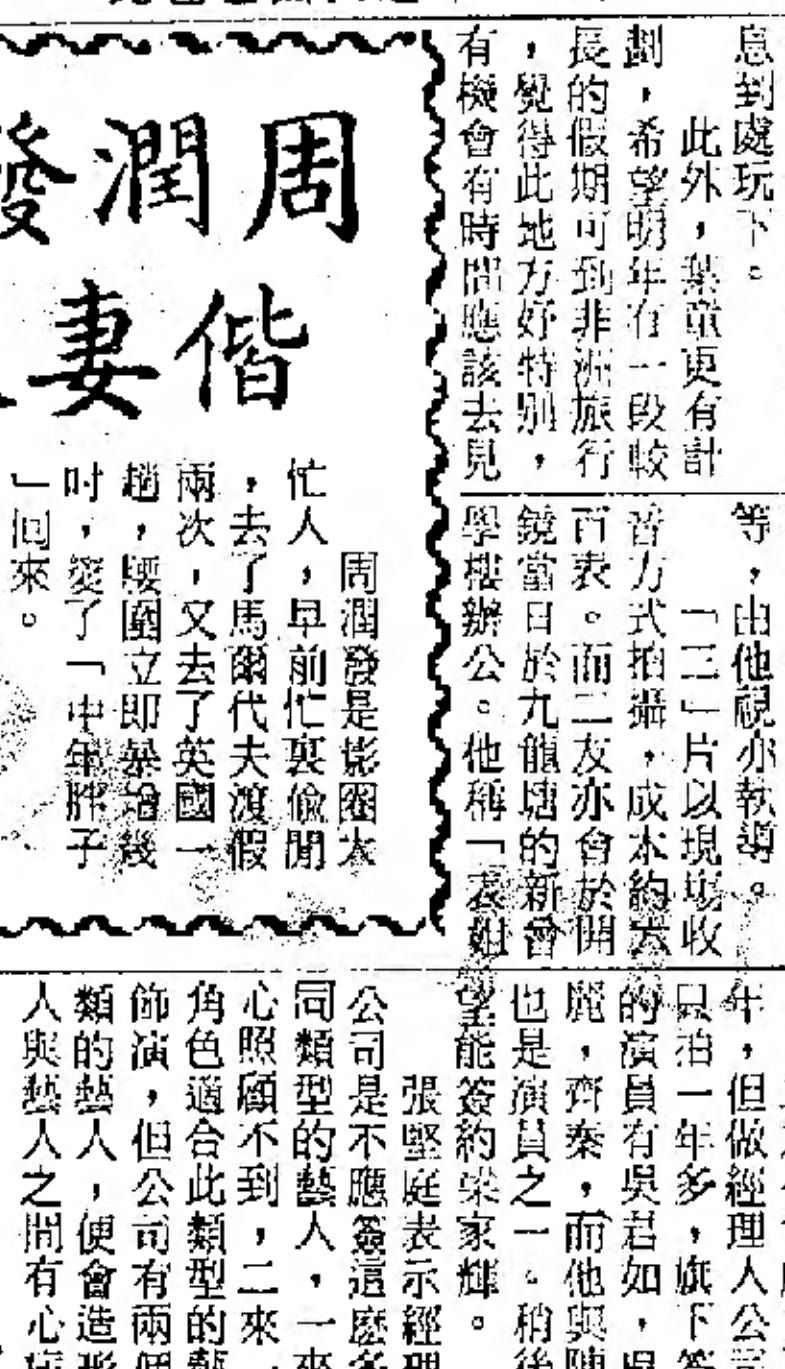 息到處玩下。
此外，葉童更有計
劃，希望明年有一段較
長的假期可到非洲旅行
，覺得此地方好特別，
有機會有時間應該去見
等，由他視亦執導。
「三」片以現場收
音方式拍攝，成本約六
百表。而二友亦會於開
鏡當日於九龍塘的新會
學樓辦公。他稱「表姐
周潤發
偕妻
周潤發是影圈大
忙人，早前忙裏偷閒
，去了馬爾代夫渡假
兩次，又去了英國一
趟，腰圍立即暴增幾
吋，變了「中年胖子
」回來。
年，但做經理人公司
只拍一年多，旗下簽
的演員有吳君如，吳
麗，齊秦，而他與陳
也是演員之一。稍後
望能簽約梁家輝。
張堅庭表示經理
公司是不應簽這麼多
同類型的藝人，一來
心照顧不到，二來，
角色適合此類型的藝
飾演，但公司有兩個
類的藝人，便會造形
人與藝人之間有心病